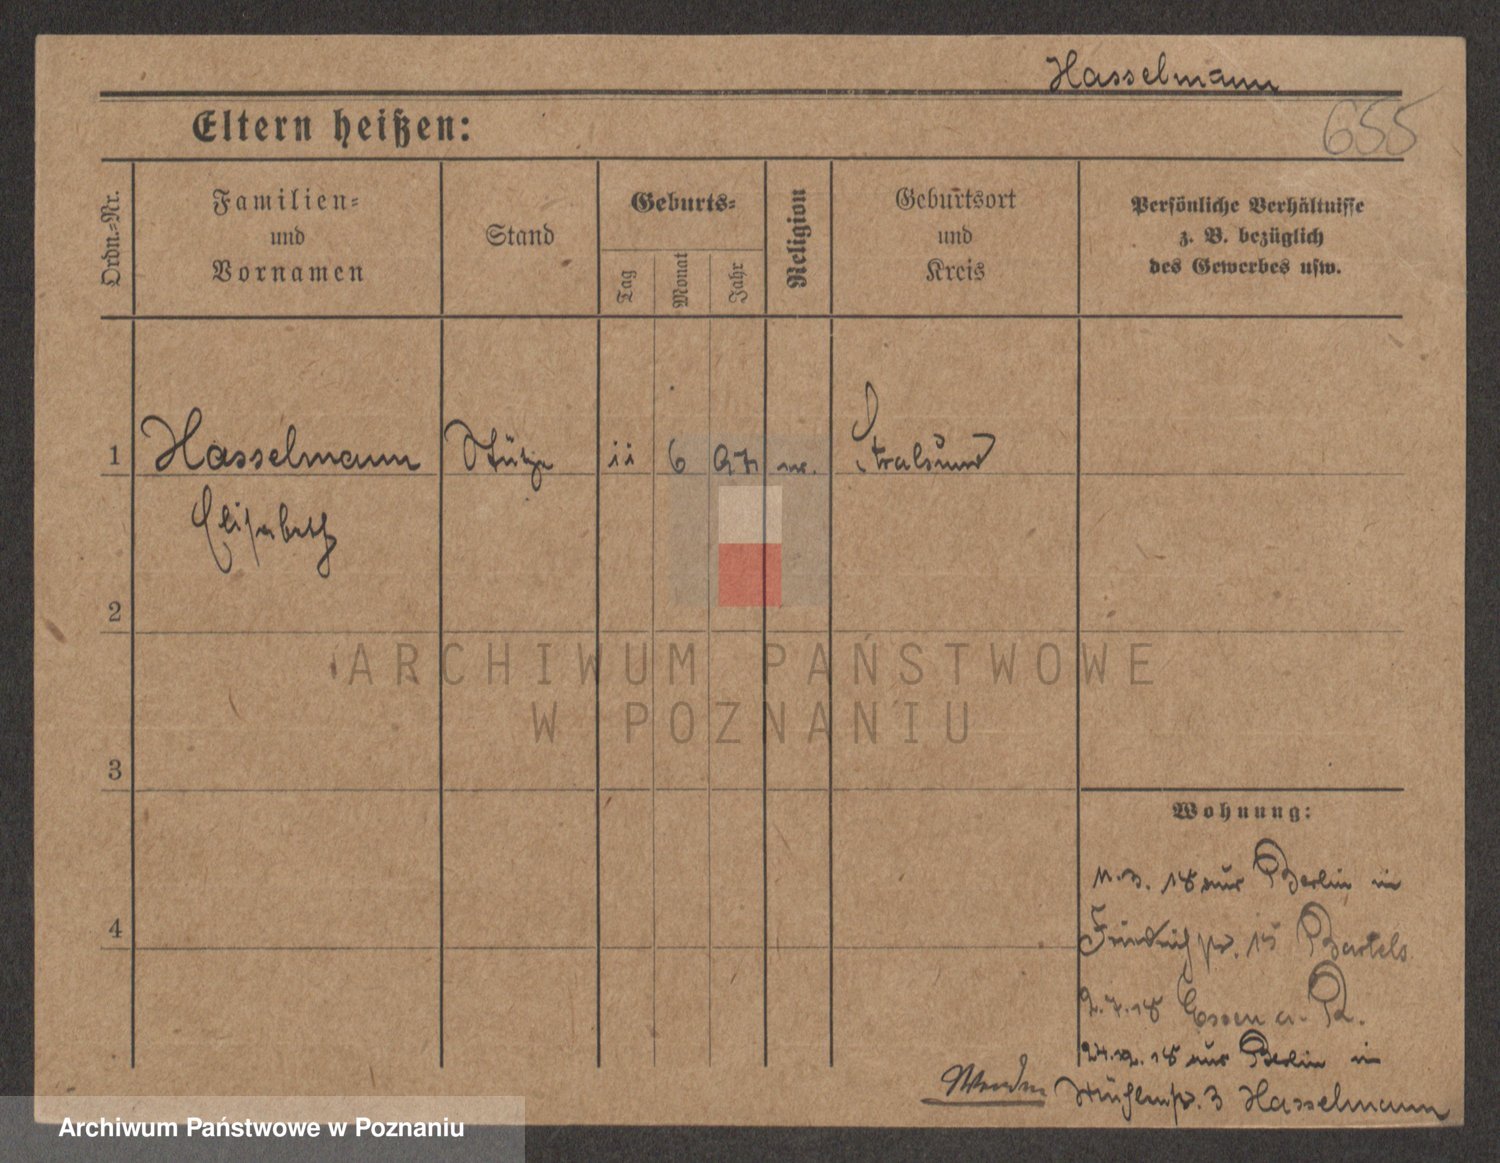 Hasselmann
655
Eltern heißen:
Ordn.-Nr.
Familien-
und
Vornamen
Stand
Geburts-
Tag
Monat
Jahr
Religion
Geburtsort
und
Kreis
Persönliche Verhältnisse
z. B. bezüglich
des Gewerbes usw.
1 Hasselmann Stütze 11 6 97 ev. Stralsund
Elisabeth
2
ARCHIWUM PAŃSTWOWE
W POZNANIU
3
Wohnung:
11.3.18 aus Berlin in
4
Friedrichstr. 15 Bartels
2.7.18 Essen a. R.
24.12.18 aus Berlin in
Mühlenstr. 3 Hasselmann
Archiwum Państwowe w Poznaniu